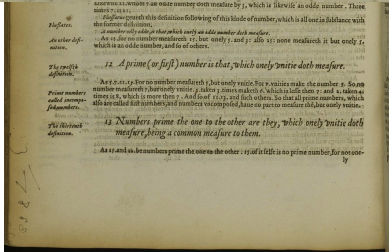 likewise 11. whom 7 an odde number doth measure by 3, which is likewise an odde number. Three
times 7. is 21.
Flussates.
Flussates geueth this definition following of this kinde of number, which is all one in substance with
the former definition.
An other definition.
A number odly odde is that, which onely an odde number doth measure.
As 15. for no number measureth 15. but onely 5. and 3: also 25: none measureth it but onely 5.
which is an odde number, and so of others.
The twelfth definition.
12 A prime (or first) number is that, which onely vnitie doth measure.
Prime numbers called incomposed numbers.
As 5.7.11.13. For no number measureth 5, but onely vnitie. For v. vnities make the number 5. So no
number measureth 7, but onely vnitie. 2. taken 3. times maketh 6. which is lesse then 7: and 2. taken 4.
times is 8, which is more then 7. And so of 11.13. and such others. So that all prime numbers, which
also are called first numbers, and numbers vncomposed, haue no part to measure thē, but onely vnitie.
The thirtenth definition.
13 Numbers prime the one to the other are they, which onely vnitie doth
measure, being a common measure to them.
As 15. and 22. be numbers prime the one to the other: 15. of it selfe is no prime number, for not one-
ly